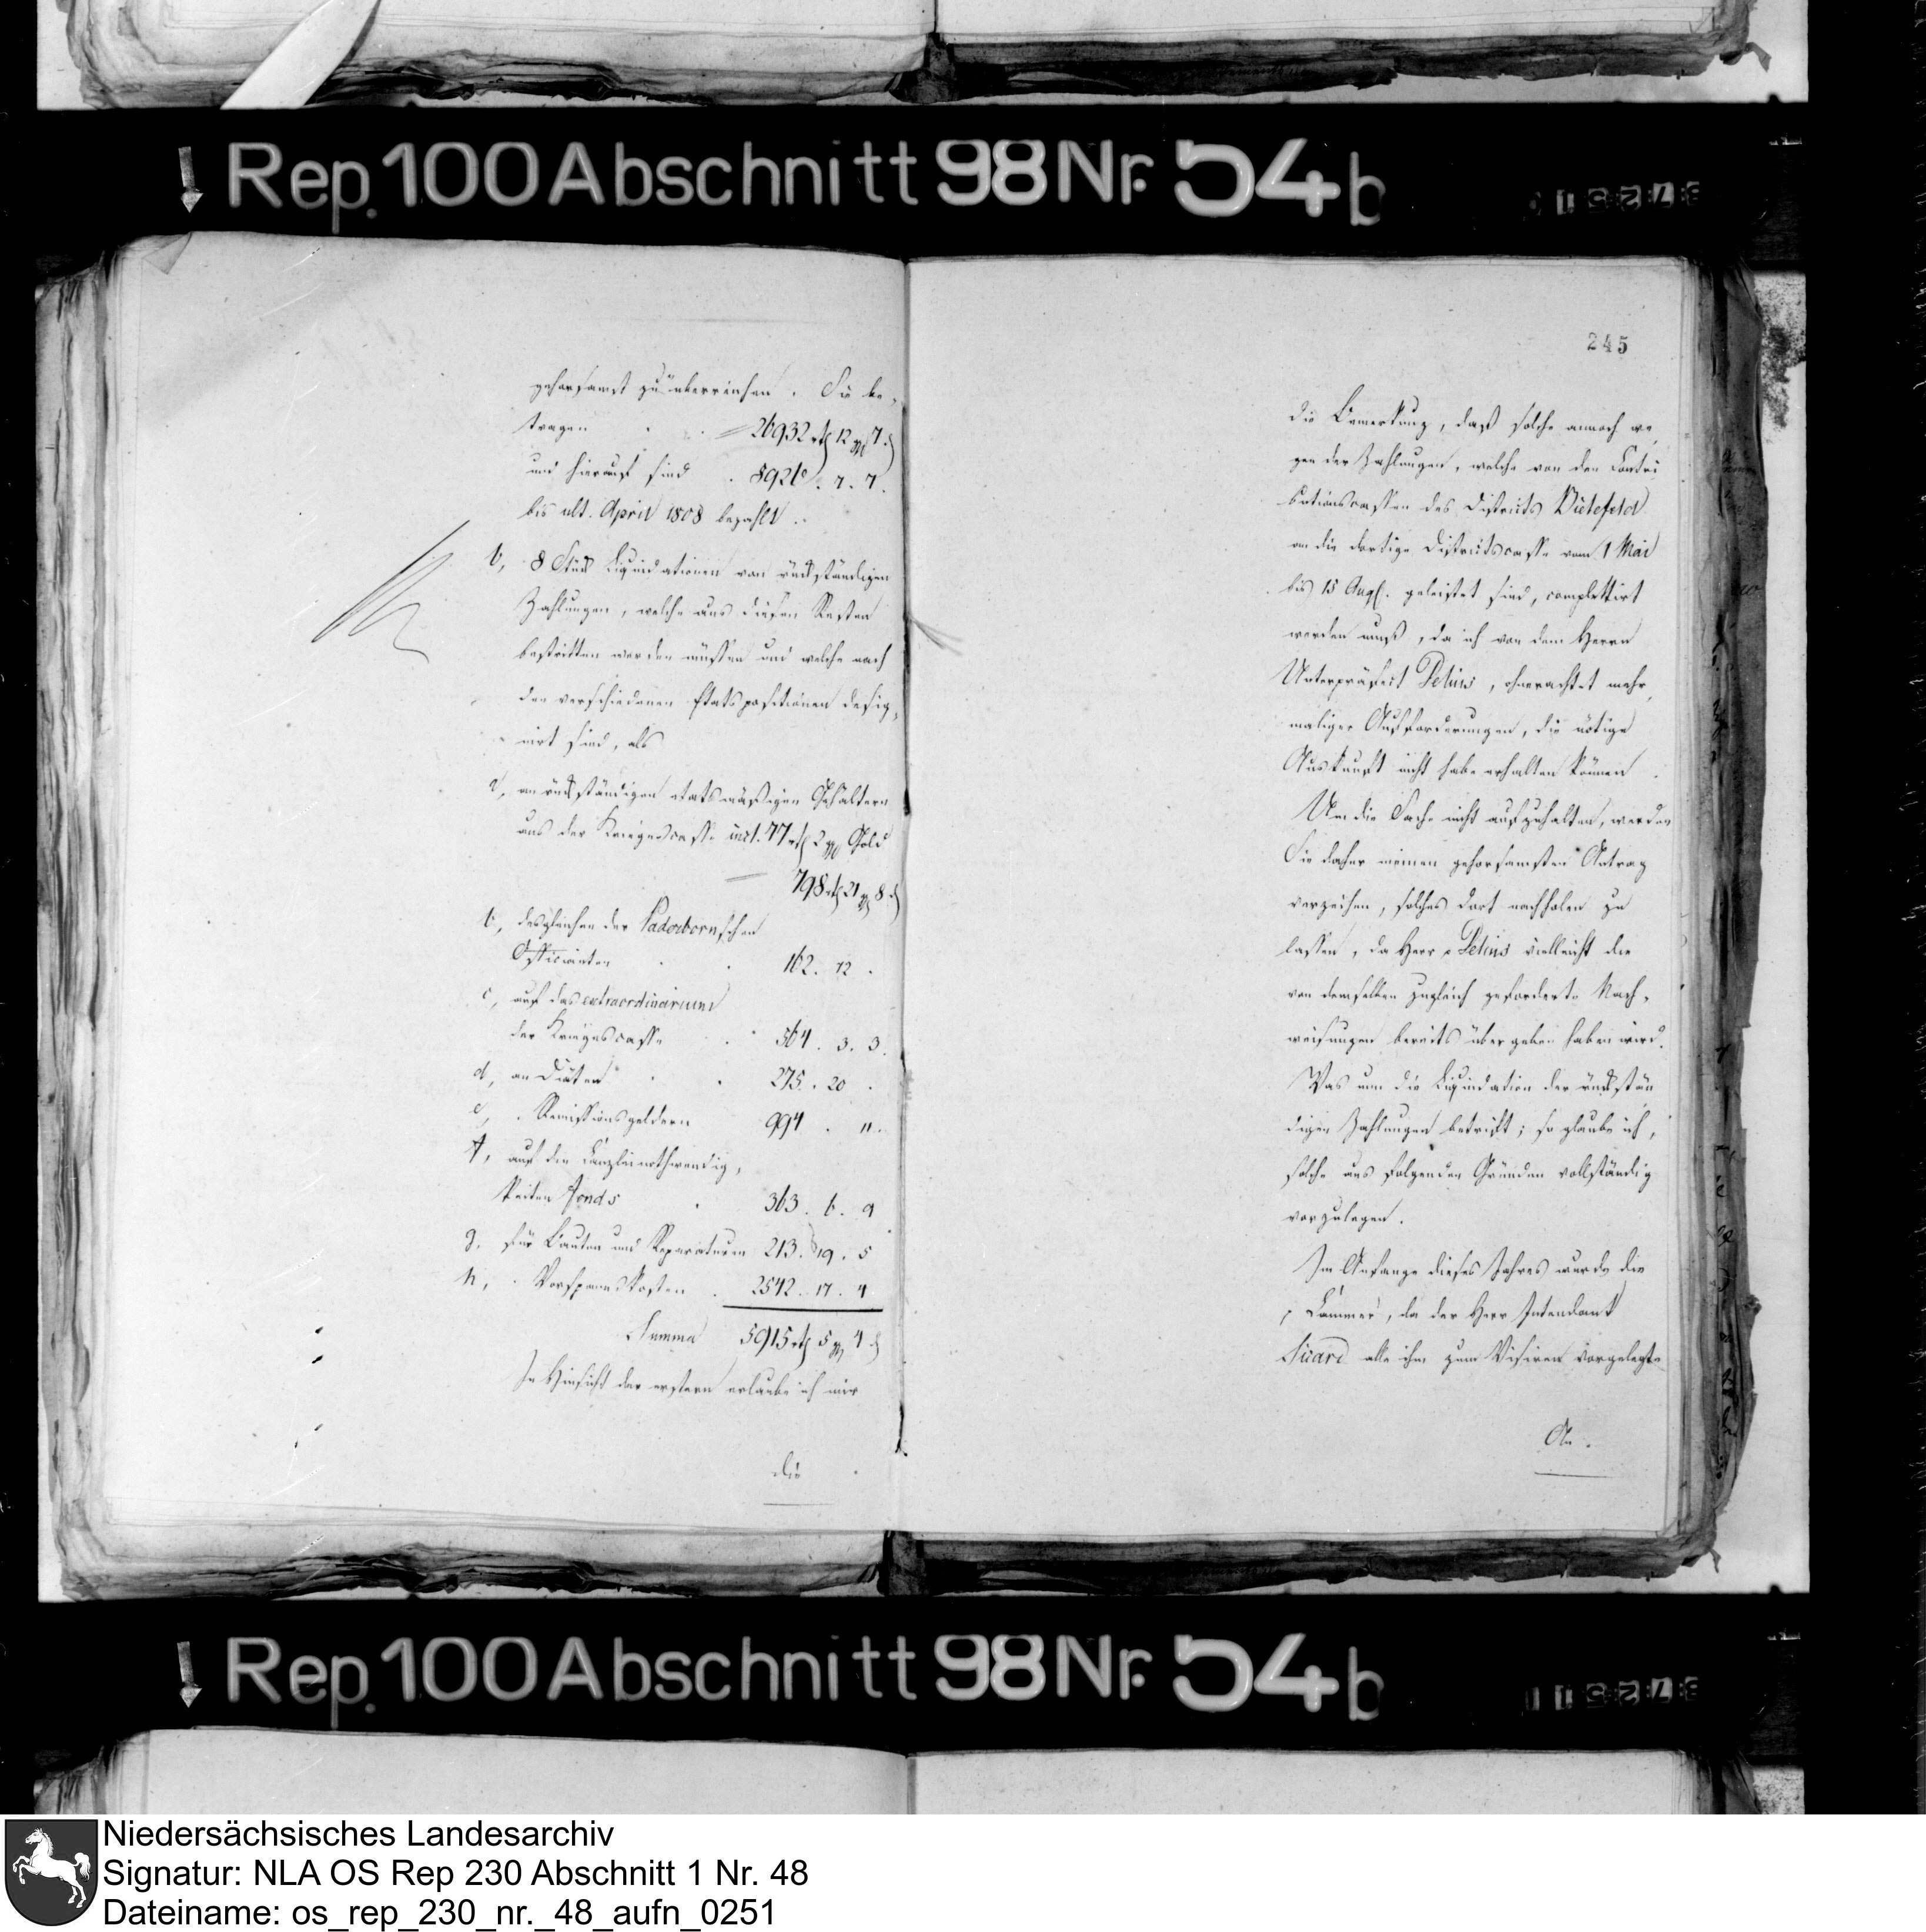 Rep. 100 Abschnitt 98 Nr. 54 b
gehorsamst zu überreichen. Sie be-
tragen 26932 rth 12 ggl 7 d
und hierauf sind 8926. 7. 7.
bis ult. April 1808 bezahlt.
b, 8 Stück Liquidationen von rückständigen
Zahlungen, welche aus diesen Resten
bestritten werden müssen und welche nach
den verschiedenen Etatspositionen desig-
nirt sind, als
a, an rückständigen etatsmäßigen Gehältern
aus der Kriegescasse incl. 77 rth 2 ggl Gold
798 rth 21 ggl 8 d
b, desgleichen der Paderbornschen
Officianten 162. 12.
c, auf das extraordinarium
der Kriegescasse 564. 3. 3.
d, an Diäten 275. 20.
e, " Remissionsgeldern 994. ".
f, auf den Canzleinothwendig-
keiten Fonds 363. 6. 9
g, für Bauten und Reparaturen 213. 19. 5
h, " Vorspannskosten 2542. 17. 4
Summa 5915 rth 5 ggl 4 d
In Hinsicht der erstern erlaube ich mir
die
245
die Bemerkung, daß solche annoch we-
gen der Zahlungen, welche von den Contri-
butionscassen des Districts Bielefeld
an die dortige Districtscasse vom 1 Mai
bis 15 Aug. geleistet sind, complettirt
werden muß, da ich von dem Herrn
Unterpräfect Delius, ohnerachtet mehr-
maliger Aufforderungen, die nötige
Auskunft nicht habe erhalten können.
Um die Sache nicht aufzuhalten, werden
Sie daher meinen gehorsamsten Antrag
verzeihen, solches dort nachholen zu
lassen, da Herr Delius vielleicht die
von demselben zugleich geforderte Nach-
weisungen bereits übergeben haben wird.
Was nun die Liquidation der rückstän-
digen Zahlungen betrift; so glaube ich,
solche aus folgenden Gründen vollständig
vorzulegen.
Im Anfange dieses Jahres wurde die
Cammer, da der Herr Intendant
Sicard alle ihm zum Visiren vorgelegte
An-
Rep. 100 Abschnitt 98 Nr. 54 b
Niedersächsisches Landesarchiv
Signatur: NLA OS Rep 230 Abschnitt 1 Nr. 48
Dateiname: os_rep_230_nr._48_aufn_0251